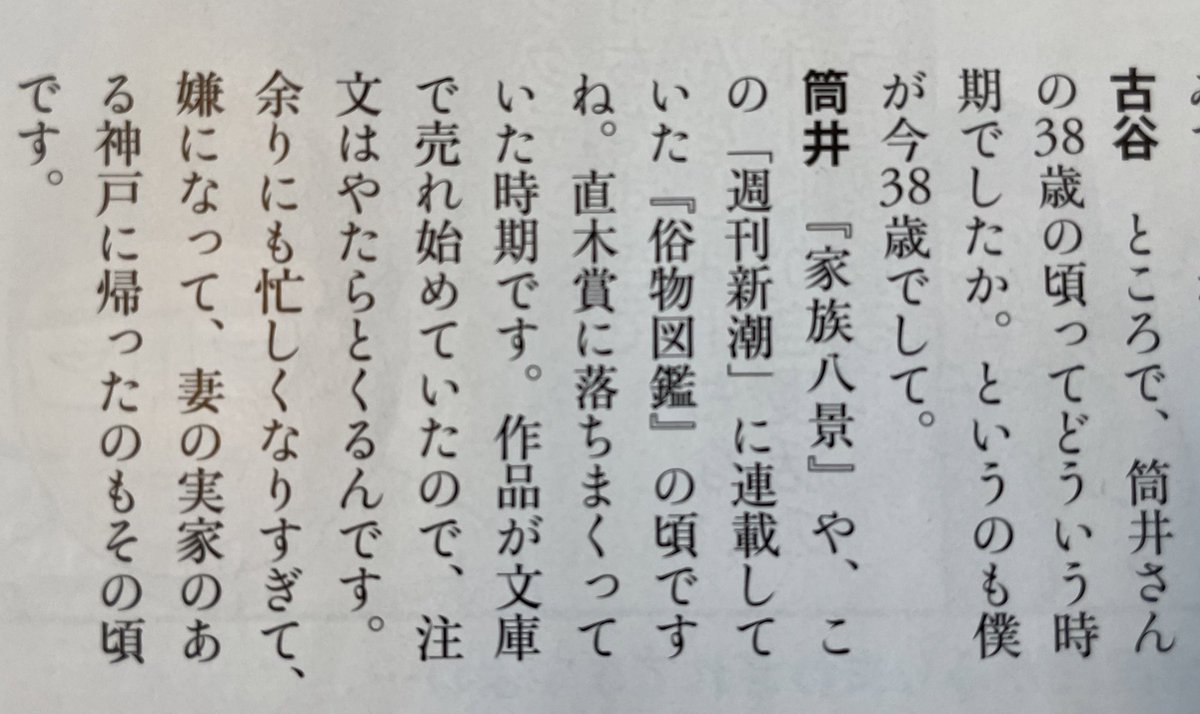 古谷　ところで、筒井さん
の38歳の頃ってどういう時
期でしたか。というのも僕
が今38歳でして。
筒井　『家族八景』や、こ
の「週刊新潮」に連載して
いた『俗物図鑑』の頃です
ね。直木賞に落ちまくって
いた時期です。作品が文庫
で売れ始めていたので、注
文はやたらとくるんです。
余りにも忙しくなりすぎて、
嫌になって、妻の実家のあ
る神戸に帰ったのもその頃
です。